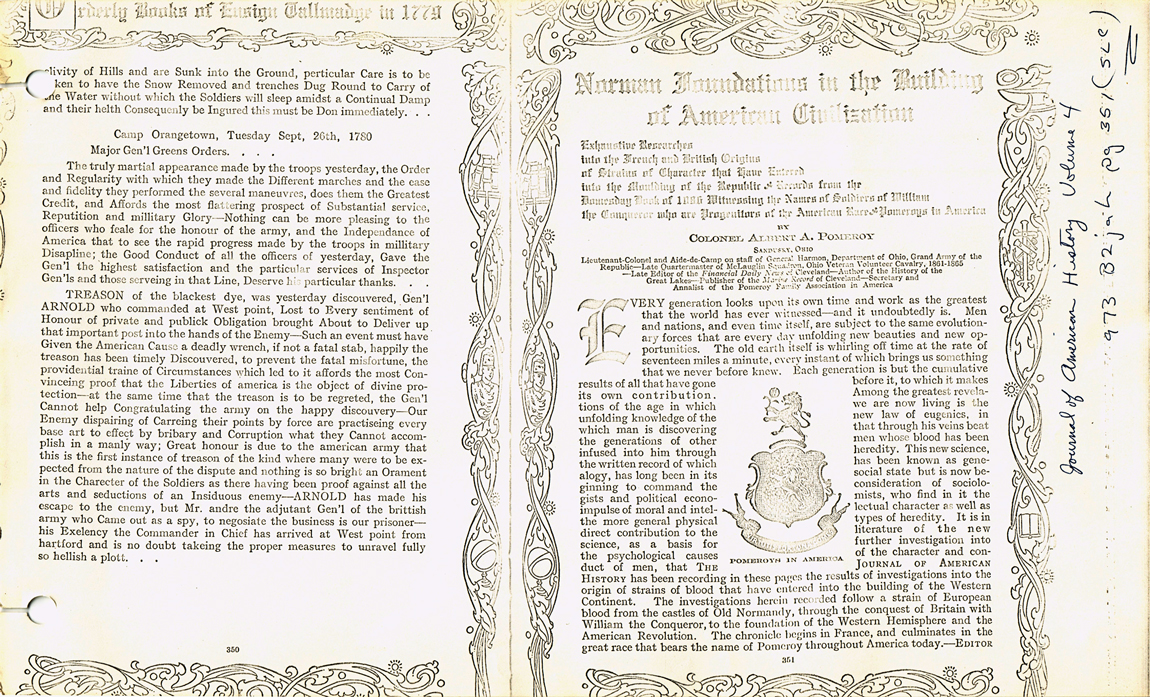 Orderly Books of Ensign Tallmadge in 1779
clivity of Hills and are Sunk into the Ground, perticular Care is to be
ken to have the Snow Removed and trenches Dug Round to Carry of
the Water without which the Soldiers will sleep amidst a Continual Damp
and their helth Consequenly be Ingured this must be Don immediately. . .
Camp Orangetown, Tuesday Sept, 26th, 1780
Major Gen'l Greens Orders. . . .
The truly martial appearance made by the troops yesterday, the Order
and Regularity with which they made the Different marches and the ease
and fidelity they performed the several maneuvres, does them the Greatest
Credit, and Affords the most flattering prospect of Substantial service,
Reputition and millitary Glory—Nothing can be more pleasing to the
officers who feale for the honour of the army, and the Independance of
America that to see the rapid progress made by the troops in millitary
Disapline; the Good Conduct of all the officers of yesterday, Gave the
Gen'l the highest satisfaction and the particular services of Inspector
Gen'ls and those serveing in that Line, Deserve his particular thanks. . . .
TREASON of the blackest dye, was yesterday discovered, Gen'l
ARNOLD who commanded at West point, Lost to Every sentiment of
Honour of private and publick Obligation brought About to Deliver up
that important post into the hands of the Enemy—Such an event must have
Given the American Cause a deadly wrench, if not a fatal stab, happily the
treason has been timely Discovered, to prevent the fatal misfortune, the
providential traine of Circumstances which led to it affords the most Con-
vinceing proof that the Liberties of america is the object of divine pro-
tection—at the same time that the treason is to be regreted, the Gen'l
Cannot help Congratulating the army on the happy discouvery—Our
Enemy dispairing of Carreing their points by force are practiseing every
base art to effect by bribary and Corruption what they Cannot accom-
plish in a manly way; Great honour is due to the american army that
this is the first instance of treason of the kind where many were to be ex-
pected from the nature of the dispute and nothing is so bright an Orament
in the Charecter of the Soldiers as there having been proof against all the
arts and seductions of an Insiduous enemy—ARNOLD has made his
escape to the enemy, but Mr. andre the adjutant Gen'l of the brittish
army who Came out as a spy, to negosiate the business is our prisoner—
his Exelency the Commander in Chief has arrived at West point from
hartford and is no doubt takeing the proper measures to unravel fully
so hellish a plott. . . .
350
Norman Foundations in the Building
of American Civilization
Exhaustive Researches
into the French and British Origins
of Strains of Character that Have Entered
into the Moulding of the Republic Records from the
Domesday Book of 1086 Witnessing the Names of Soldiers of William
the Conqueror who are Progenitors of the American Race Pomeroys in America
BY
COLONEL ALBERT A. POMEROY
SANDUSKY, OHIO
Lieutenant-Colonel and Aide-de-Camp on staff of General Harmon, Department of Ohio, Grand Army of the
Republic—Late Quartermaster of McLauglin Squadron, Ohio Veteran Volunteer Cavalry, 1861-1865
—Late Editor of the Financial Daily News of Cleveland—Author of the History of the
Great Lakes—Publisher of the Record of Cleveland—Secretary and
Annalist of the Pomeroy Family Association in America
EVERY generation looks upon its own time and work as the greatest
that the world has ever witnessed—and it undoubtedly is. Men
and nations, and even time itself, are subject to the same evolution-
ary forces that are every day unfolding new beauties and new op-
portunities. The old earth itself is whirling off time at the rate of
seventeen miles a minute, every instant of which brings us something
that we never before knew. Each generation is but the cumulative
results of all that have gone before it, to which it makes
its own contribution. Among the greatest revela-
tions of the age in which we are now living is the
unfolding knowledge of the new law of eugenics, in
which man is discovering that through his veins beat
the generations of other men whose blood has been
infused into him through heredity. This new science,
the written record of which has been known as gene-
alogy, has long been in its social state but is now be-
ginning to command the consideration of sociolo-
gists and political econo- mists, who find in it the
impulse of moral and intel- lectual character as well as
the more general physical types of heredity. It is in
direct contribution to the literature of the new
science, as a basis for further investigation into
the psychological causes of the character and con-
duct of men, that THE JOURNAL OF AMERICAN
POMEROYS IN AMERICA
HISTORY has been recording in these pages the results of investigations into the
origin of strains of blood that have entered into the building of the Western
Continent. The investigations herein recorded follow a strain of European
blood from the castles of Old Normandy, through the conquest of Britain with
William the Conqueror, to the foundation of the Western Hemisphere and the
American Revolution. The chronicle begins in France, and culminates in the
great race that bears the name of Pomeroy throughout America today.—EDITOR
351
Journal of American History Volume 4
973 B2jah pg 351 (SLC)